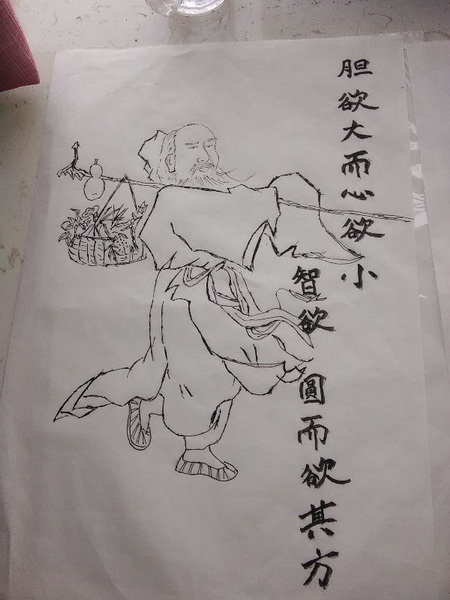 胆欲大而心欲小
智欲圓而欲其方